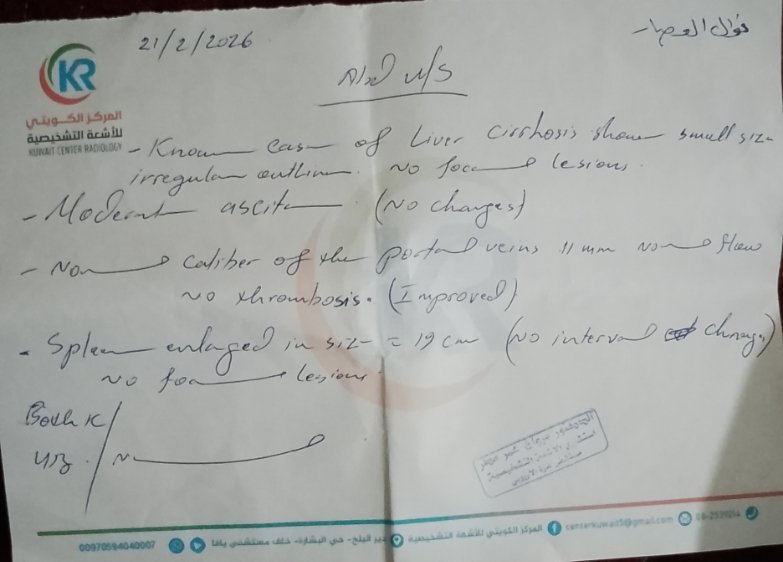 21/2/2026
نوال العصار
KR
المركز الكويتي
للأشعة التشخيصية
KUWAIT CENTER RADIOLOGY
U/S
- Known case of Liver cirrhosis show small size
irregular outline. No focal lesions.
- Moderate ascites (No changes)
- Normal caliber of the portal veins 11 mm normal flow
No thrombosis. (Improved)
- Spleen enlaged in size = 19 cm (No interval change)
No focal lesions.
Both K
UB / N
استشاري الأشعة التشخيصية
00970594040007
دير البلح - حي البشارة - خلف مستشفى يافا
المركز الكويتي للأشعة التشخيصية
centerkuwait5@gmail.com